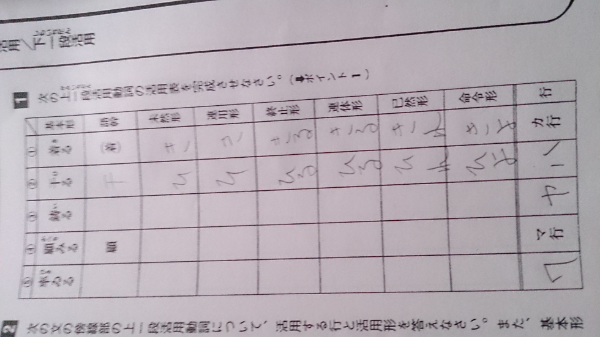 活用/下一段活用
1 次の上一段活用動詞の活用表を完成させなさい。(➡ポイント1)
基本形 語幹 未然形 連用形 終止形 連体形 已然形 命令形 行
① 着る (着) き き きる きる きれ きよ カ行
② 干る 干 ひ ひ ひる ひる ひれ ひよ ハ
③ 鋳る ヤ
④ 顧みる 顧 マ行
⑤ 率ゐる ワ
2 次の文の傍線部の上一段活用動詞について、活用する行と活用形を答えなさい。また、基本形